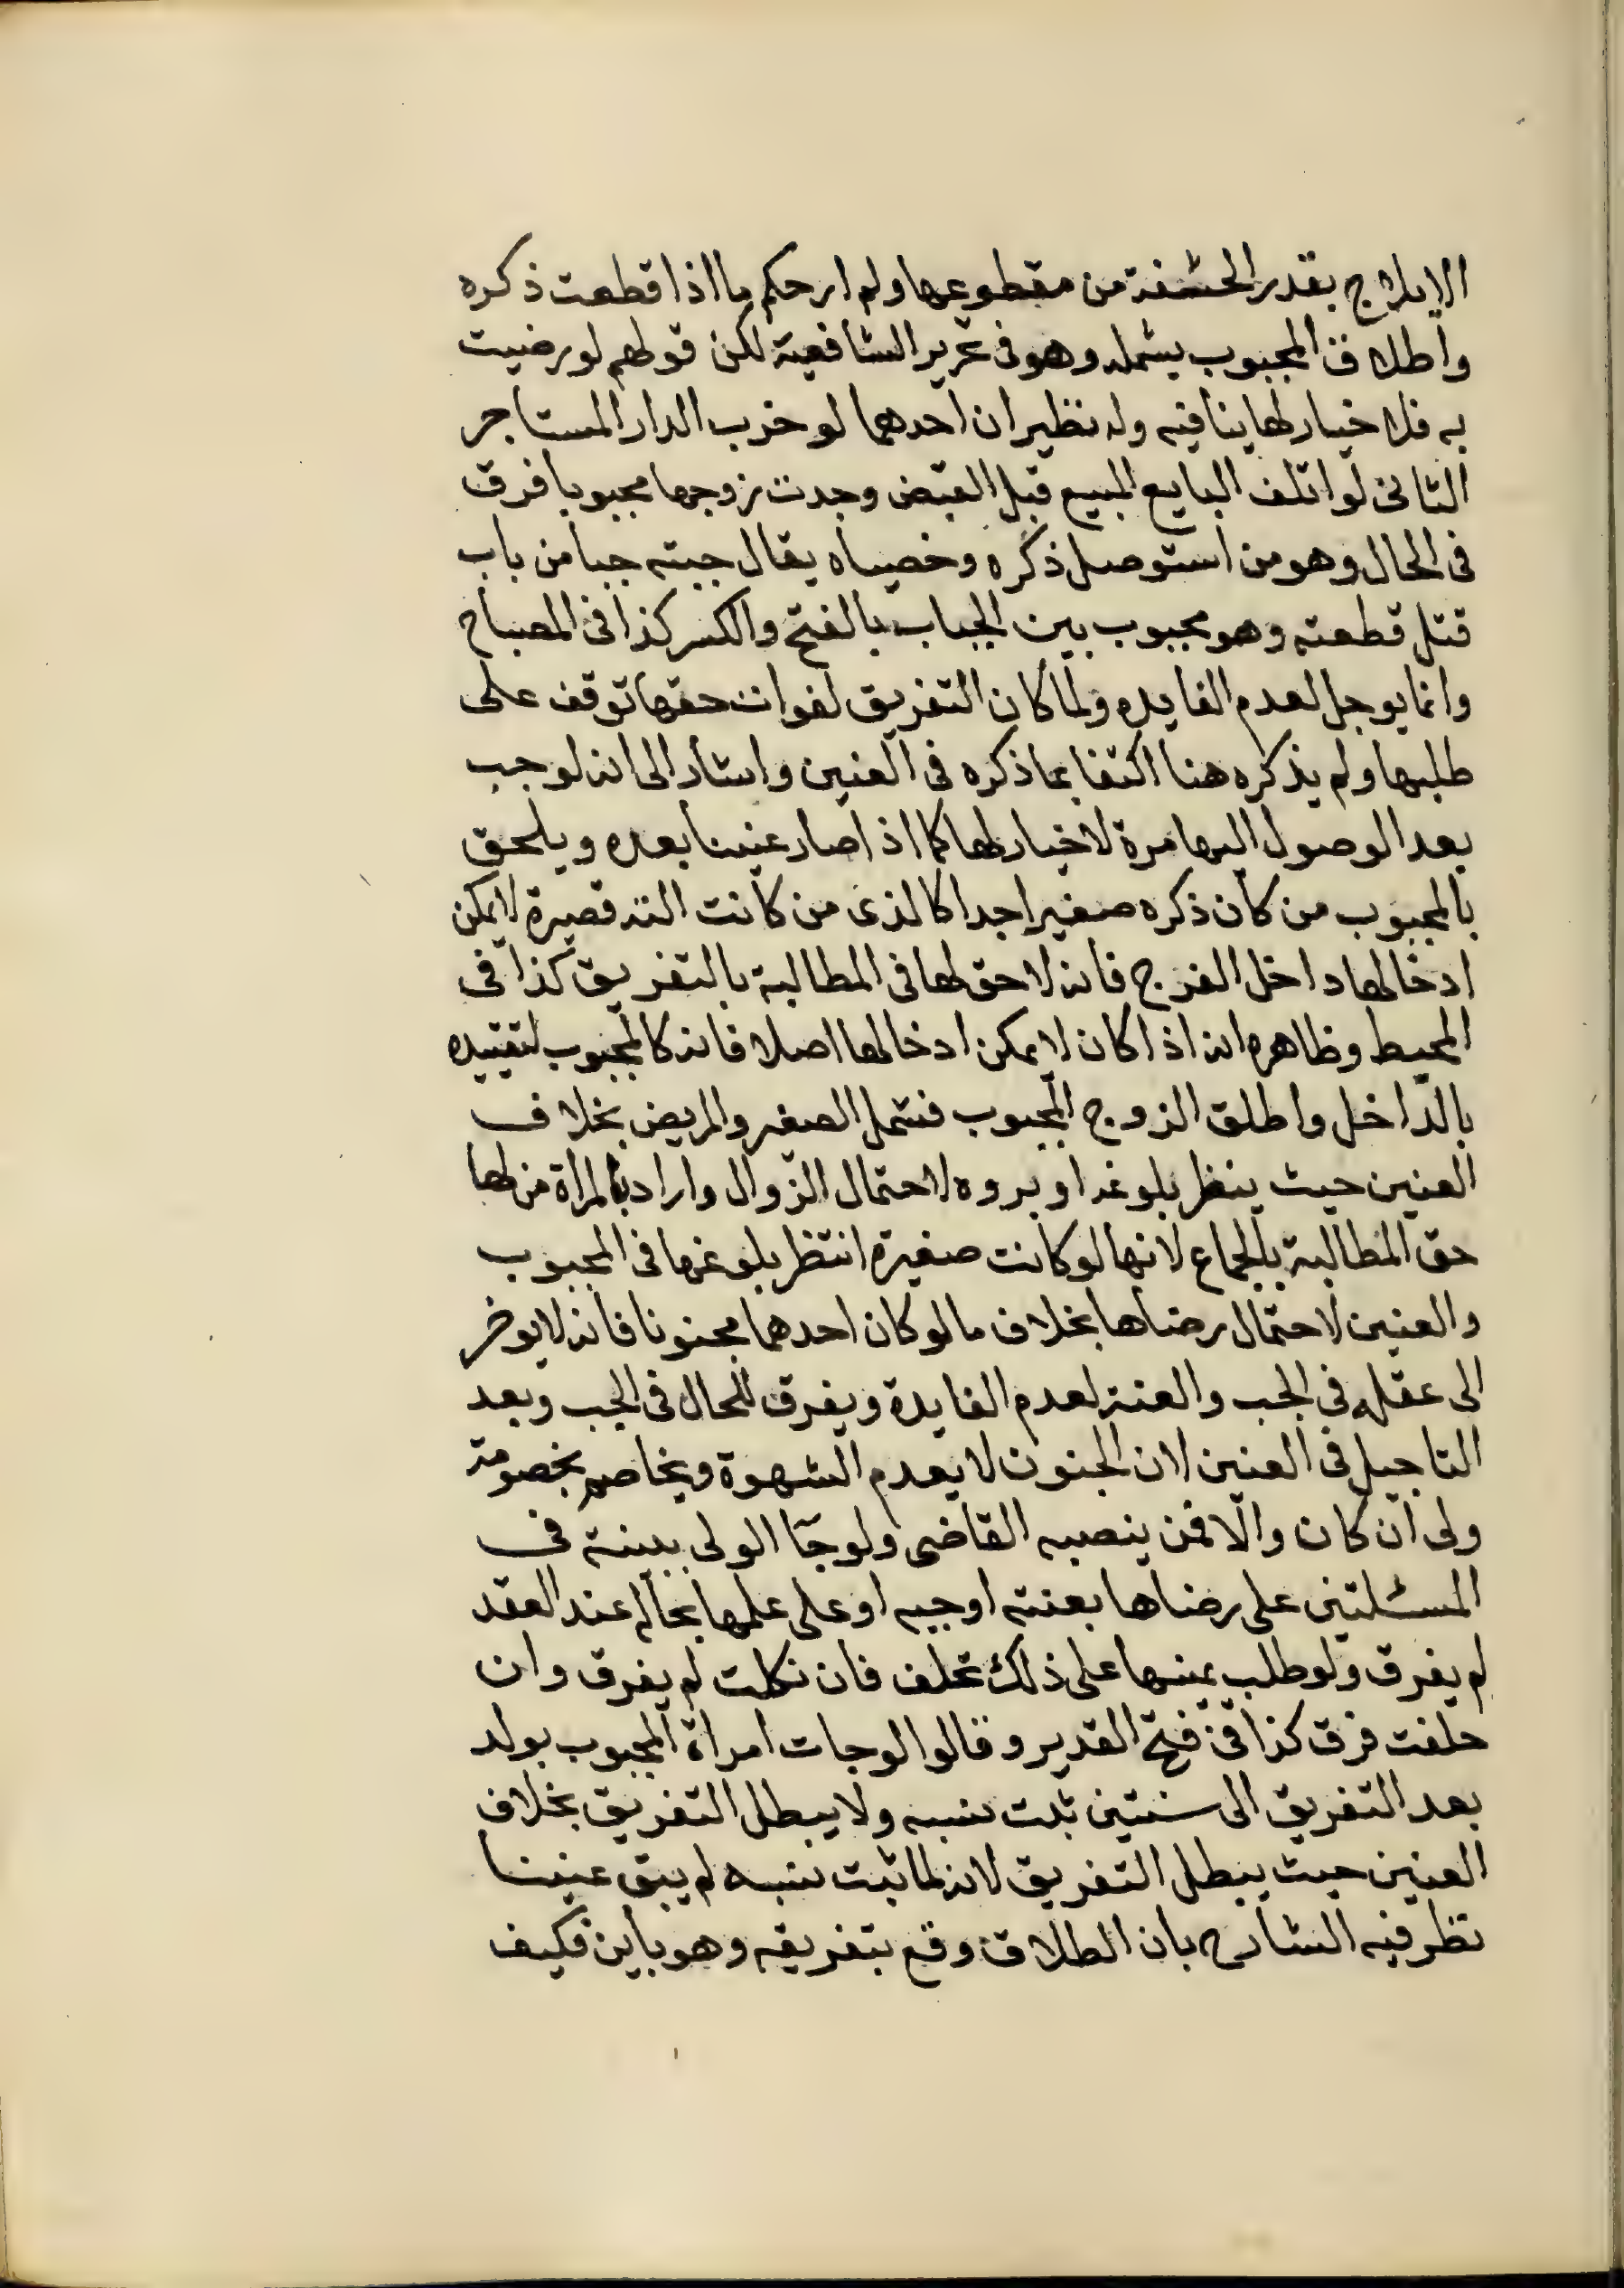 الايلاج بقدر الحشفة من مقطوعها ولم ار حكم ما اذا قطعت ذكره
واطلاق المجبوب يشمله وهو في تحرير الشافعية لكن قولهم لو رضيت
به فلا خيار لها ينافيه وله نظيران احدهما لو خرب الدار المستاجر
الثاني لو اتلف البايع المبيع قبل القبض وجدت زوجها مجبوبا فرق
في الحال وهو من استوصل ذكره وخصياه يقال جببته جبا من باب
قتل قطعته وهو مجبوب بين الجباب بالفتح والكسر كذا في المصباح
وانما يوجل لعدم الفايده ولما كان التفريق لفوات حقها توقف على
طلبها ولم يذكره هنا اكتفا بما ذكره في العنين واشار الى انه لو جب
بعد الوصول اليها مرة لا خيار لها كما اذا صار عنينا بعده ويلحق
بالمجبوب من كان ذكره صغيرا جدا كالذى من كانت التد قصيرة لا يمكن
ادخالها داخل الفرج فانه لا حق لها في المطالبة بالتفريق كذا في
المحيط وظاهره انه اذا كان لا يمكن ادخالها اصلا فانه كالمجبوب لتقييده
بالداخل واطلق الزوج المجبوب فشمل الصغير والمريض بخلاف
العنين حيث ينظر بلوغه او بروه لاحتمال الزوال واراد بالمراة من لها
حق المطالبة بالجماع لانها لو كانت صغيرة انتظر بلوغها في المجبوب
والعنين لاحتمال رضاها بخلاف ما لو كان احدهما مجنونا فانه لا يوخر
الى عقله في الجب والعنة لعدم الفايدة ويفرق للحال في الجب وبعد
التاجيل في العنين لان الجنون لا يعدم الشهوة ويخاصم بخصومة
ولى ان كان والا فمن ينصبه القاضى ولو جآ الولى ببينة في
المسئلتين على رضاها بعنته او جبه او على علمها بحاله عند العقد
لم يفرق ولو طلب يمينها على ذلك تحلف فان نكلت لم يفرق وان
حلفت فرق كذا في فتح القدير وقالوا لو جات امراة المجبوب بولد
بعد التفريق الى سنتين ثبت نسبه ولا يبطل التفريق بخلاف
العنين حيث يبطل التفريق لانه لما ثبت نسبه لم يبق عنينا
نظر فيه الشارح بان الطلاق وقع بتفريقه وهو باين فكيف